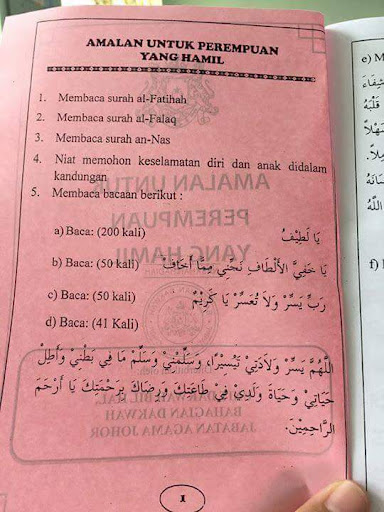 AMALAN UNTUK PEREMPUAN
YANG HAMIL
1. Membaca surah al-Fatihah
2. Membaca surah al-Falaq
3. Membaca surah an-Nas
4. Niat memohon keselamatan diri dan anak didalam
kandungan
5. Membaca bacaan berikut :
a) Baca: (200 kali) يَا لَطِيْفُ
b) Baca: (50 kali) يَا خَفِيَّ الأَلْطَافِ نَجِّنِي مِمَّا أَخَافُ
c) Baca: (50 kali) رَبِّ يَسِّرْ وَلاَ تُعَسِّرْ يَا كَرِيْمُ
d) Baca: (41 Kali)
اَللَّهُمَّ يَسِّرْ وَلاَدَتِيْ تَيْسِيْرًا، وَسَلِّمْنِيْ وَسَلِّمْ مَا فِي بَطْنِيْ وَأَطِلْ
حَيَاتِيْ وَحَيَاةَ وَلَدِيْ فِيْ طَاعَتِكَ وَرِضَاكَ بِرَحْمَتِكَ يَا أَرْحَمَ
الرَّاحِمِيْنَ.
1
e) M
شِفَاءَ
قَلْبَهُ
سَهْلاً
اللَّهُ
f)